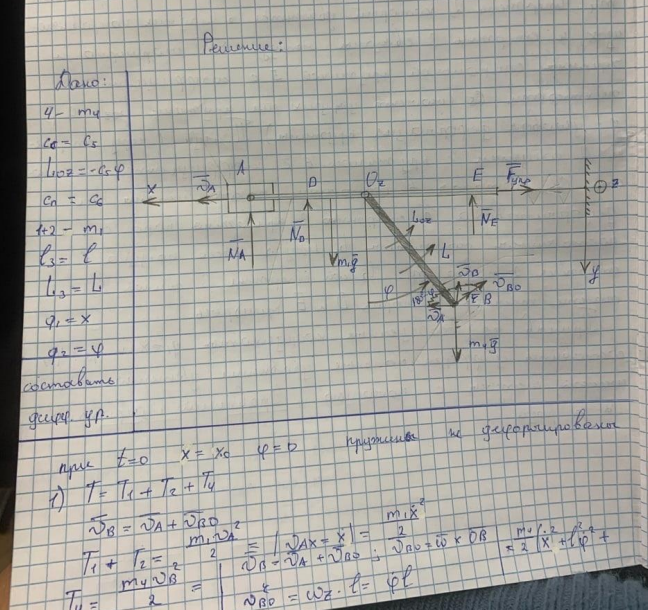 Решение:
Дано:
4 - m₄
c₅ = c₅
L_oz = -c₅φ
c_п = c₆
1+2 - m₁
l₃ = l
L₃ = L
q₁ = x
q₂ = φ
составить
дифф. ур.
x
v̄_A
A
D
O_z
E
F̄_упр
z
N̄_A
N̄_D
m₁ḡ
L_oz
L
N̄_E
φ
v̄_B
v̄_BO
B
v̄_A
m₄ḡ
y
при t=0 x = x₀ φ=0 пружины не деформированы
1) T = T₁ + T₂ + T₄
v̄_B = v̄_A + v̄_BO
T₁ + T₂ = m₁v_A²/2 = |v_Ax = ẋ| = m₁ẋ²/2
T₄ = m₄v_B²/2 = | v̄_B = v̄_A + v̄_BO ; v̄_BO = ω̄ × OB | = m₄/2 (ẋ² + l²φ̇² +
v_BO = ω_z · l = φ̇l